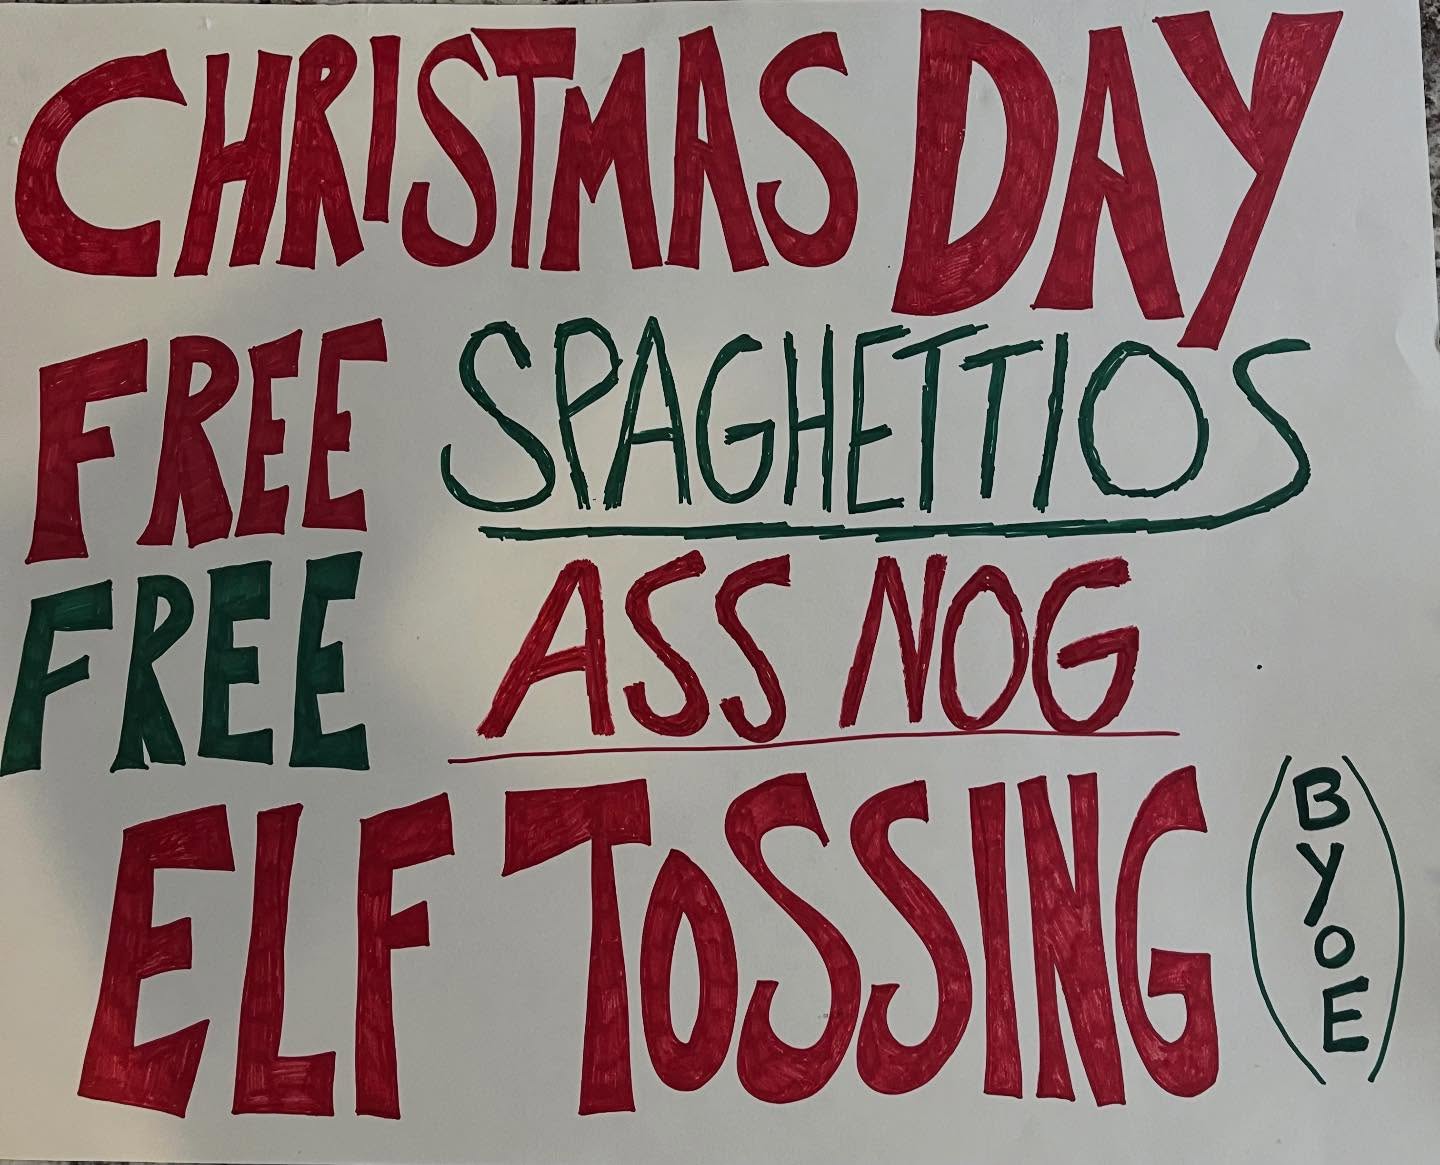 CHRISTMAS DAY
FREE SPAGHETTIOS
FREE ASS NOG
ELF TOSSING (BYOE)